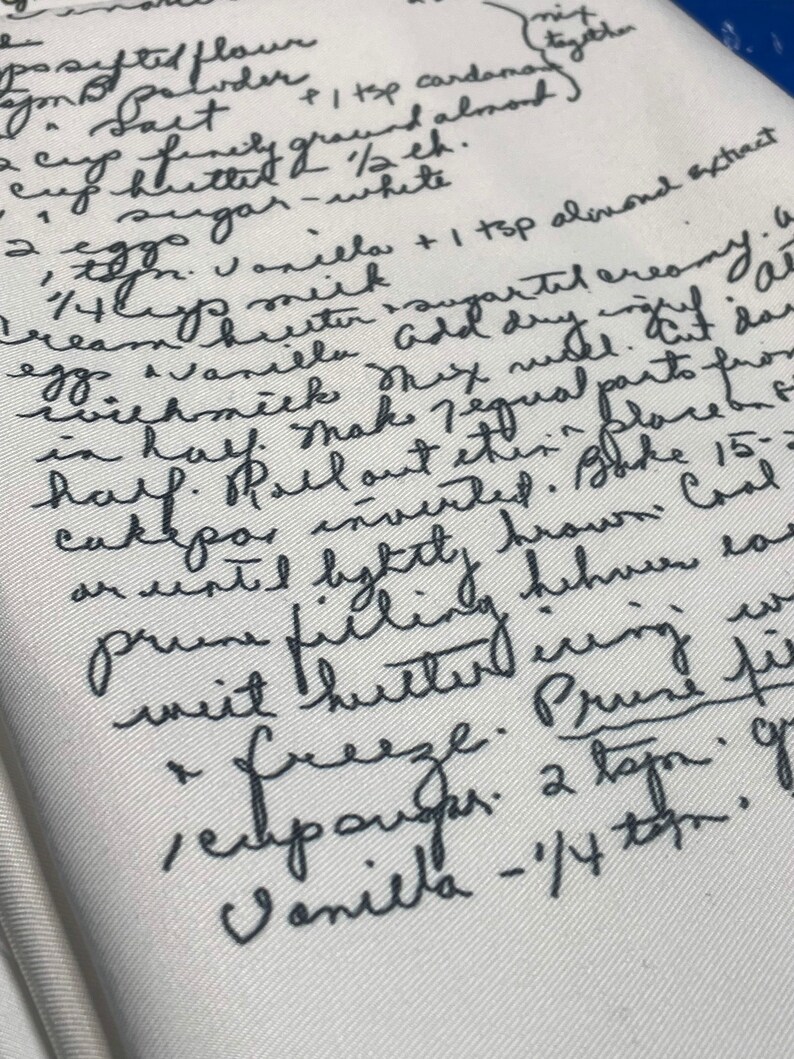 mix
together
ps sifted flour
B powder
" salt + 1 tsp cardamom
2 cup finely ground almond
cup butter - 1/2 ch.
1 " sugar - white
2 eggs
1 tspn. vanilla + 1 tsp almond extract
1/4 cups milk
cream butter + sugar til creamy.
eggs + vanilla add dry ingred
with milk Mix well. Cut
in half. Make 7 equal parts from
half. Roll out thin place on
cakepan inverted. Bake 15-
or until lightly brown. Cool
prune filling between
with butter icing
+ freeze. Prune
1 cup sugar. 2 tspn.
Vanilla - 1/4 tspn.